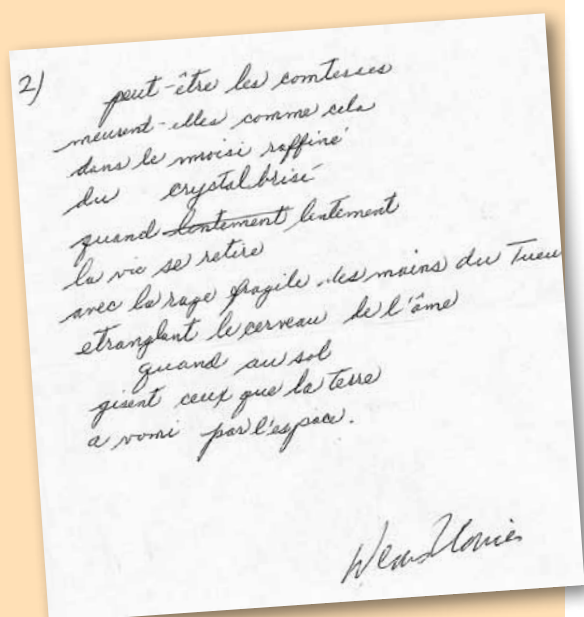 2) peut-être les comtesses
meurent-elles comme cela
dans le moisi raffiné
du crystal brisé
quand lentement lentement
la vie se retire
avec la rage fragile des mains du Tueu
etranglant le cerveau de l'âme
quand au sol
gisent ceux que la terre
a vomi par l'espace.